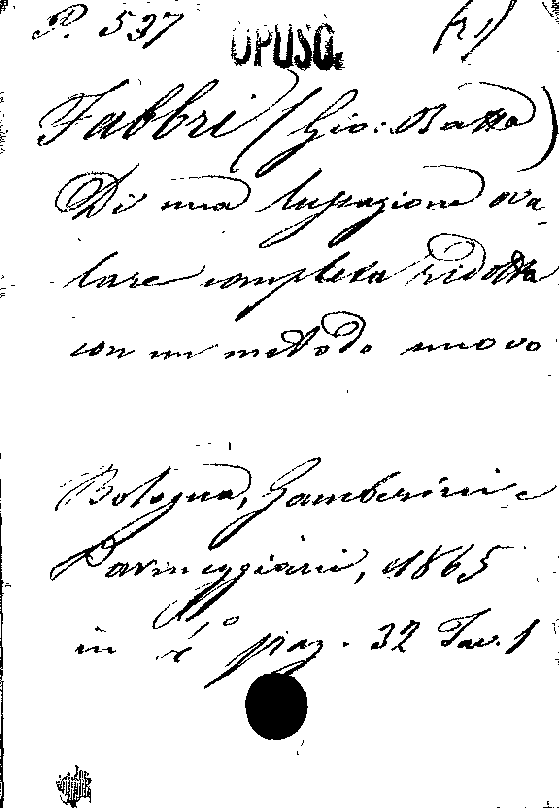 P. 537 OPUSC. (21)
Fabbri (Gio: Batta)
Di una lussazione ova-
lare completa ridotta
con un metodo nuovo
Bologna, Gamberini e
Parmeggiani, 1865
in 4.° pag. 32 Tav. 1